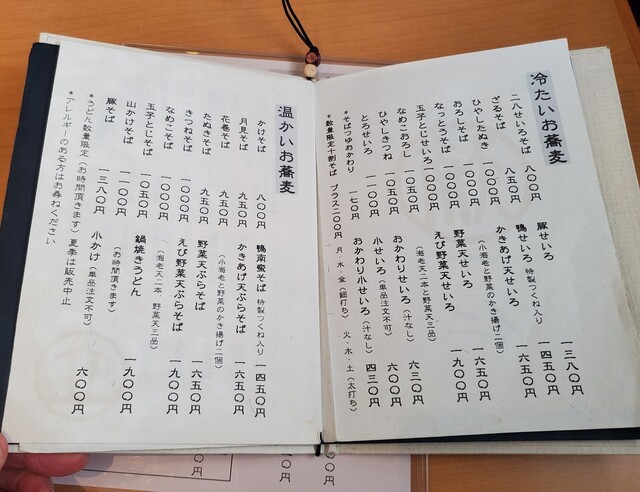 冷たいお蕎麦
二八せいろそば 八〇〇円
ざるそば 八五〇円
ひやしたぬき 一〇〇〇円
おろしそば 一〇〇〇円
なっとうそば 一〇〇〇円
玉子とじせいろ 一〇〇〇円
なめこおろし 一〇五〇円
ひやしきつね 一一〇〇円
とろせいろ 一一〇〇円
*そばつゆおかわり 一七〇円
*数量限定十割そば プラス二〇〇円 月・水・金(細打ち) 火・木・土(太打ち)
豚せいろ 一三八〇円
鴨せいろ 特製つくね入り 一四五〇円
かきあげ天せいろ 一六五〇円
(小海老と野菜のかき揚げ二個)
野菜天せいろ 一六五〇円
えび野菜天せいろ 一九〇〇円
(海老天二本と野菜天三品)
おかわりせいろ(汁なし) 六三〇円
小せいろ(単品注文不可) 六〇〇円
おかわり小せいろ(汁なし) 四三〇円
温かいお蕎麦
かけそば 八〇〇円
月見そば 九五〇円
花巻そば 九五〇円
たぬきそば 九五〇円
きつねそば 一〇五〇円
なめこそば 一〇五〇円
玉子とじそば 一〇五〇円
山かけそば 一一〇〇円
豚そば 一三八〇円
*うどん数量限定(お時間頂きます)夏季は販売中止
*アレルギーのある方はお尋ねください
鴨南蛮そば 特製つくね入り 一四五〇円
かきあげ天ぷらそば 一六五〇円
(小海老と野菜のかき揚げ二個)
野菜天ぷらそば 一六五〇円
えび野菜天ぷらそば 一九〇〇円
(海老天二本、野菜天三品)
鍋焼きうどん 一九〇〇円
(お時間頂きます)
小かけ(単品注文不可) 六〇〇円